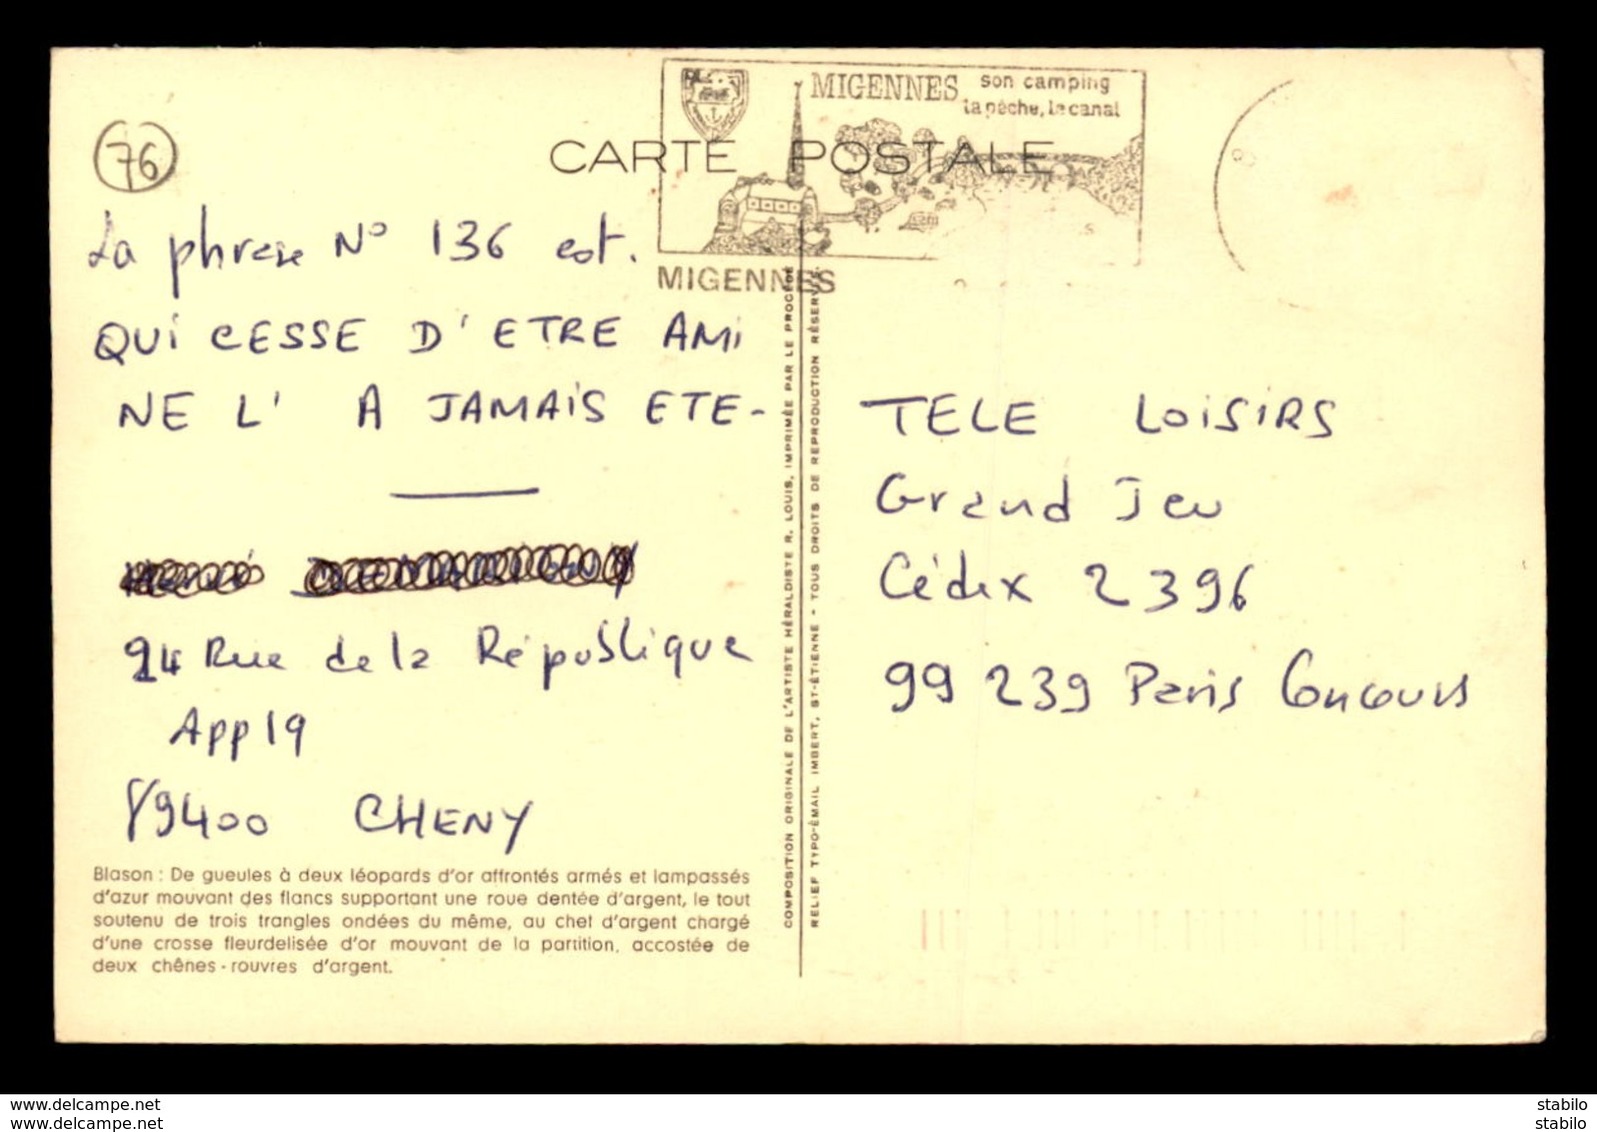 MIGENNES son camping
la pêche, le canal
CARTE POSTALE
MIGENNES
76
La phrase N° 136 est.
QUI CESSE D'ETRE AMI
NE L' A JAMAIS ETE-
24 Rue de la République
App 19
89400 CHENY
Blason : De gueules à deux léopards d'or affrontés armés et lampassés
d'azur mouvant des flancs supportant une roue dentée d'argent, le tout
soutenu de trois trangles ondées du même, au chef d'argent chargé
d'une crosse fleurdelisée d'or mouvant de la partition, accostée de
deux chênes-rouvres d'argent.
COMPOSITION ORIGINALE DE L'ARTISTE HÉRALDISTE R. LOUIS, IMPRIMÉE PAR LE PROCÉDÉ
RELIEF TYPO-ÉMAIL IMBERT, ST-ÉTIENNE - TOUS DROITS DE REPRODUCTION RÉSERVÉS.
TELE LOISIRS
Grand Jeu
Cédex 2396
99 239 Paris Concours
www.delcampe.net
www.delcampe.net
stabilo
stabilo